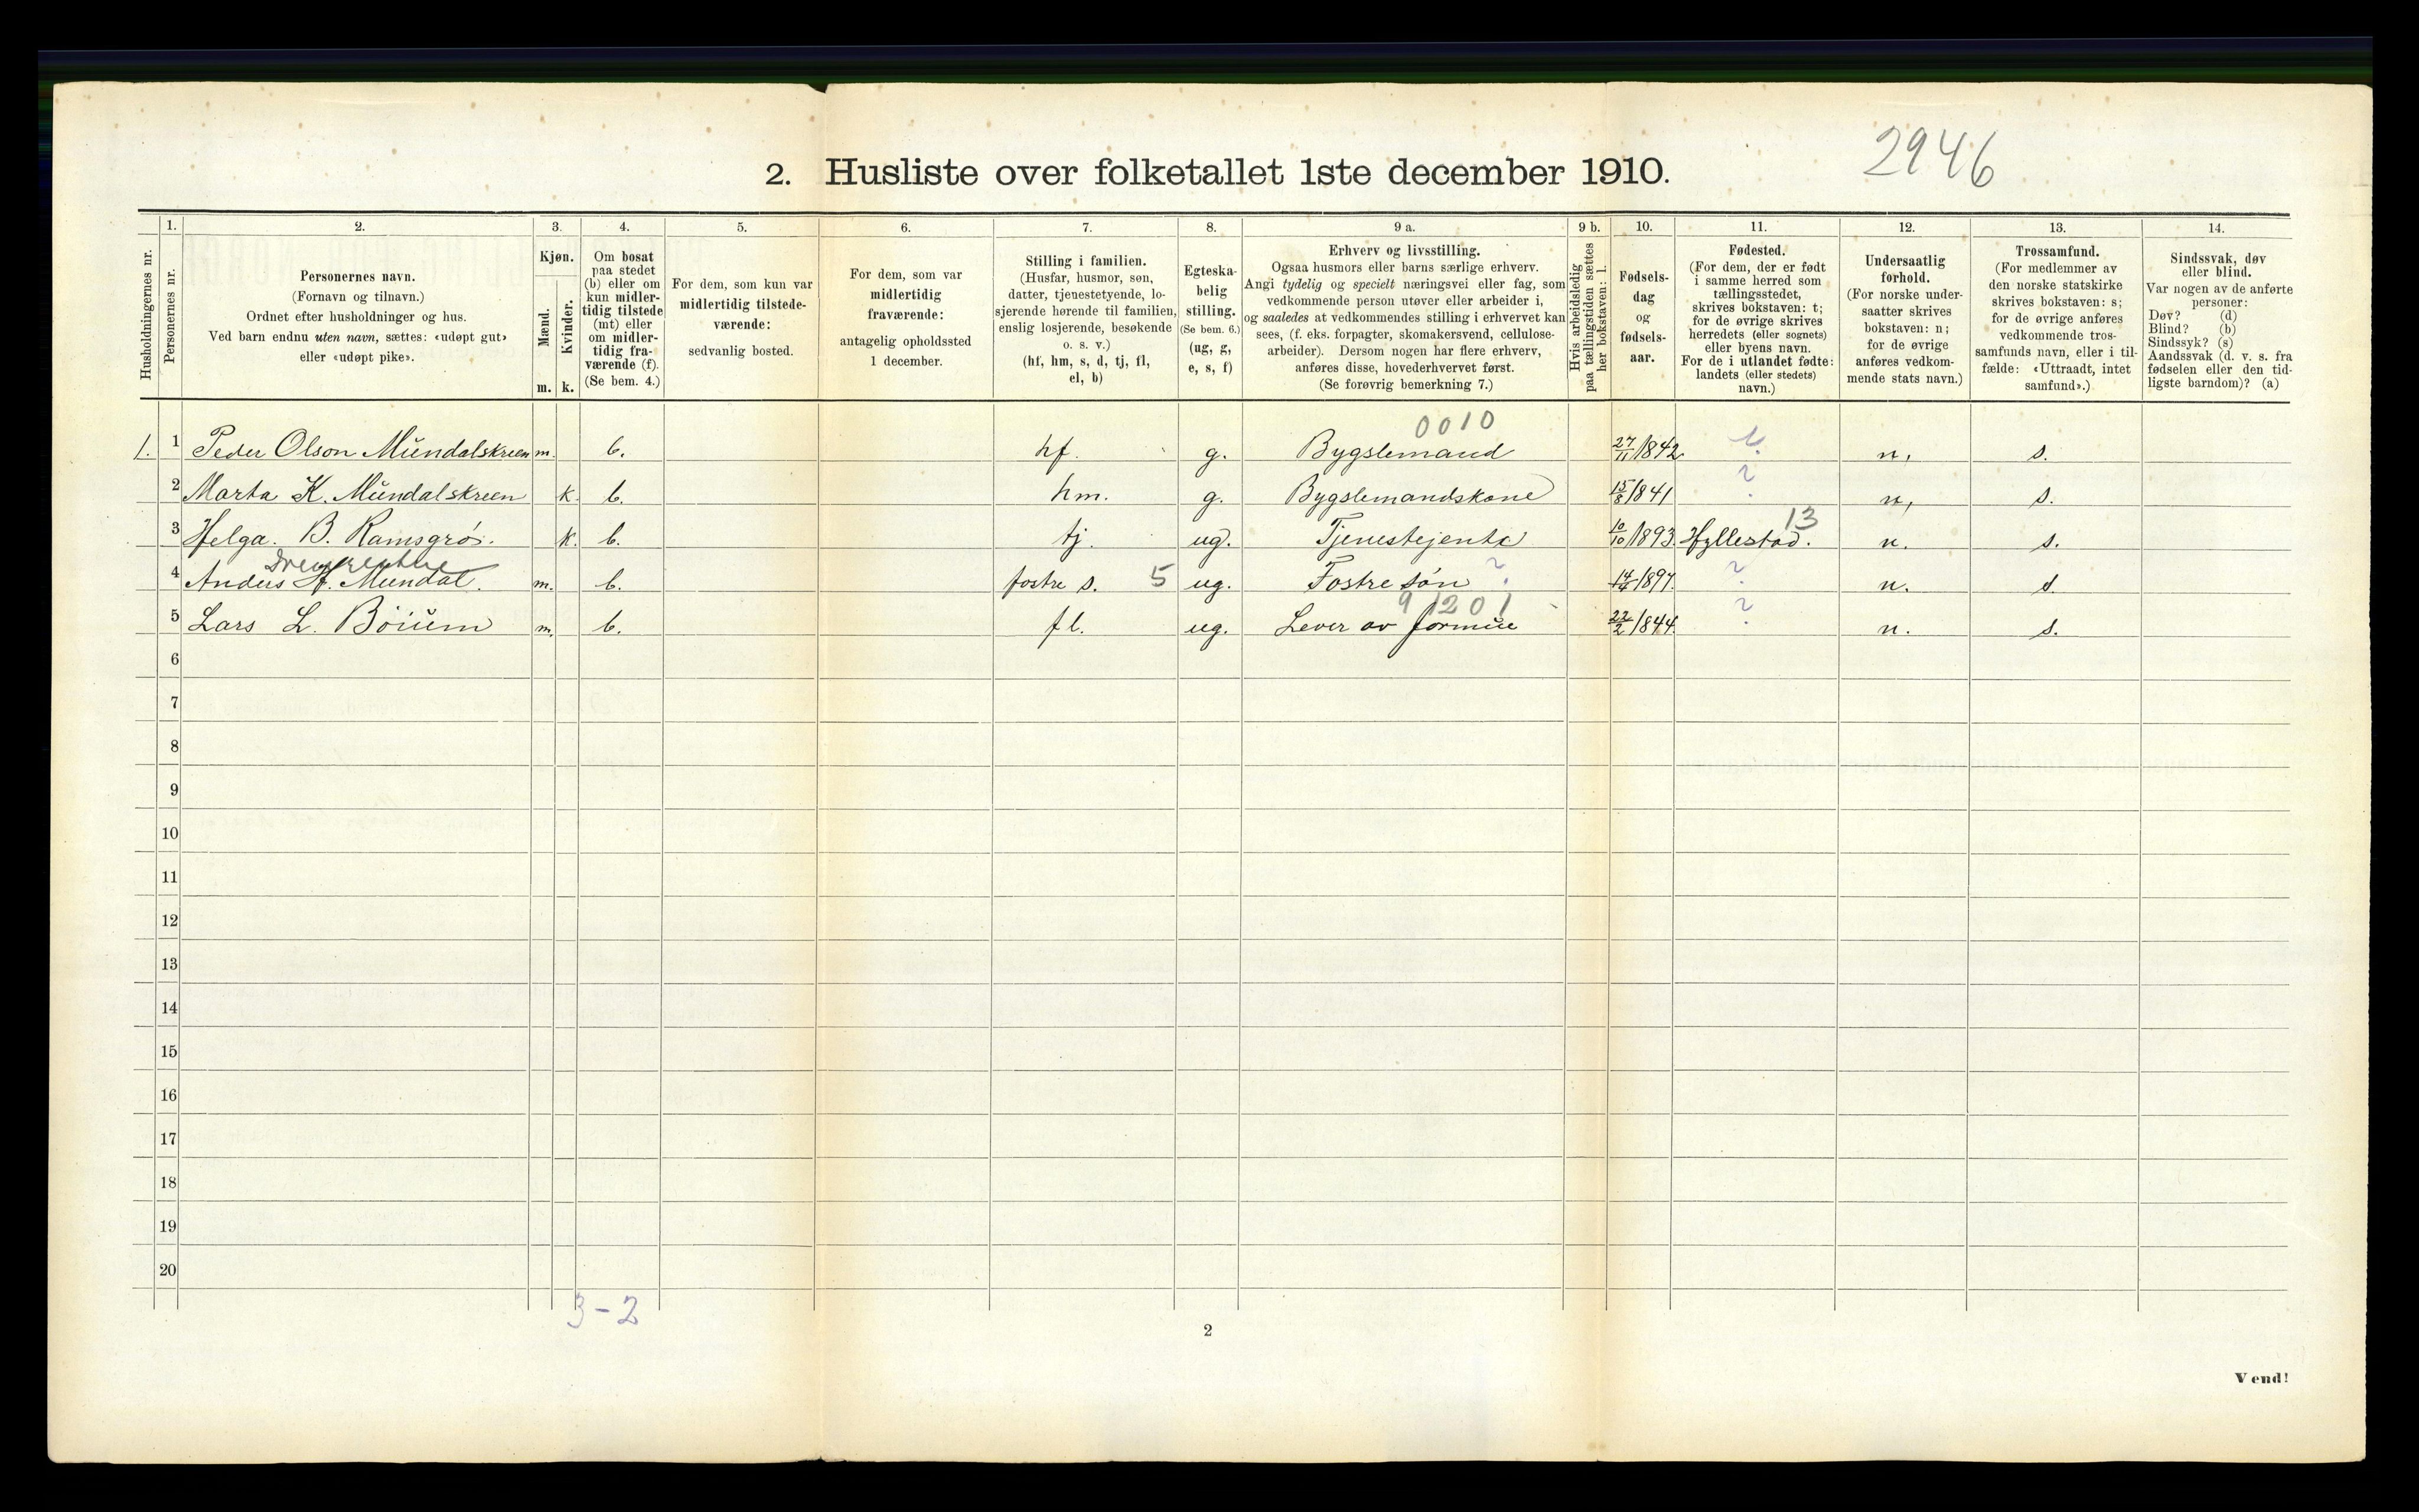 2946
2. Husliste over folketallet 1ste december 1910.
1. 2. 3. 4. 5. 6. 7. 8. 9 a. 9 b. 10. 11. 12. 13. 14.
Husholdningernes nr.
Personernes nr.
Personernes navn.
(Fornavn og tilnavn.)
Ordnet efter husholdninger og hus.
Ved barn endnu uten navn, sættes: «udøpt gut»
eller «udøpt pike».
Kjøn.
Mænd.
Kvinder.
m. k.
Om bosat
paa stedet
(b) eller om
kun midler-
tidig tilstede
(mt) eller
om midler-
tidig fra-
værende (f).
(Se bem. 4.)
For dem, som kun var
midlertidig tilstede-
værende:
sedvanlig bosted.
For dem, som var
midlertidig
fraværende:
antagelig opholdssted
1 december.
Stilling i familien.
(Husfar, husmor, søn,
datter, tjenestetyende, lo-
sjerende hørende til familien,
enslig losjerende, besøkende
o. s. v.)
(hf, hm, s, d, tj, fl,
el, b)
Egteska-
belig
stilling.
(Se bem. 6.)
(ug, g,
e, s, f)
Erhverv og livsstilling.
Ogsaa husmors eller barns særlige erhverv.
Angi tydelig og specielt næringsvei eller fag, som
vedkommende person utøver eller arbeider i,
og saaledes at vedkommendes stilling i erhvervet kan
sees, (f. eks. forpagter, skomakersvend, cellulose-
arbeider). Dersom nogen har flere erhverv,
anføres disse, hovederhvervet først.
(Se forøvrig bemerkning 7.)
Hvis arbeidsledig
paa tællingstiden sættes
her bokstaven: l.
Fødsels-
dag
og
fødsels-
aar.
Fødested.
(For dem, der er født
i samme herred som
tællingsstedet,
skrives bokstaven: t;
for de øvrige skrives
herredets (eller sognets)
eller byens navn.
For de i utlandet fødte:
landets (eller stedets)
navn.)
Undersaatlig
forhold.
(For norske under-
saatter skrives
bokstaven: n;
for de øvrige
anføres vedkom-
mende stats navn.)
Trossamfund.
(For medlemmer av
den norske statskirke
skrives bokstaven: s;
for de øvrige anføres
vedkommende tros-
samfunds navn, eller i til-
fælde: «Uttraadt, intet
samfund».)
Sindssvak, døv
eller blind.
Var nogen av de anførte
personer:
Døv? (d)
Blind? (b)
Sindssyk? (s)
Aandssvak (d. v. s. fra
fødselen eller den tid-
ligste barndom)? (a)
0010
1. 1 Peder Olson Mündalskreen m. b. hf. g. Bygslemand 27/11 1842 n, s.
2 Marta K. Mündalskreen k. b. hm. g. Bygslemandskone 15/8 1841 ? n, s.
13
3 Helga. B. Ramsgrø. k. b. tj. ug. Tjenestejente 10/10 1893 Hyllestad. n. s.
4 Anders H. Mundal. m. b. fostre s. 5 ug. Fostre søn ? 1897. ? n. s.
9 1201
5 Lars L. Böiüm m. b. fl. ug. Lever av formüe 22/2 1844. ? n. s.
6
7
8
9
10
11
12
13
14
15
16
17
18
19
20
3-2
2
Vend!